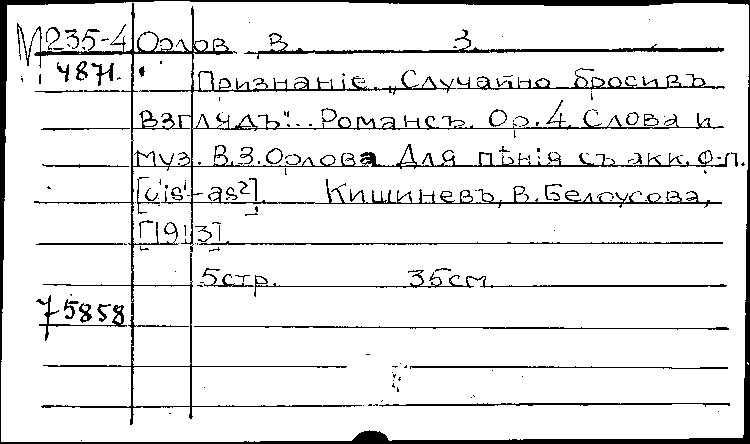 М 235-4 Орлов В. З.
4871. Признаніе. „Случайно бросивъ
взглядъ"... Романсъ. Ор. 4. Слова и
муз. В.З.Орлова Для пѣнія съ акк. ф-п.
[cis¹-as²]. Кишиневъ, В.Белоусова,
[1913].
5стр. 35см.
75858